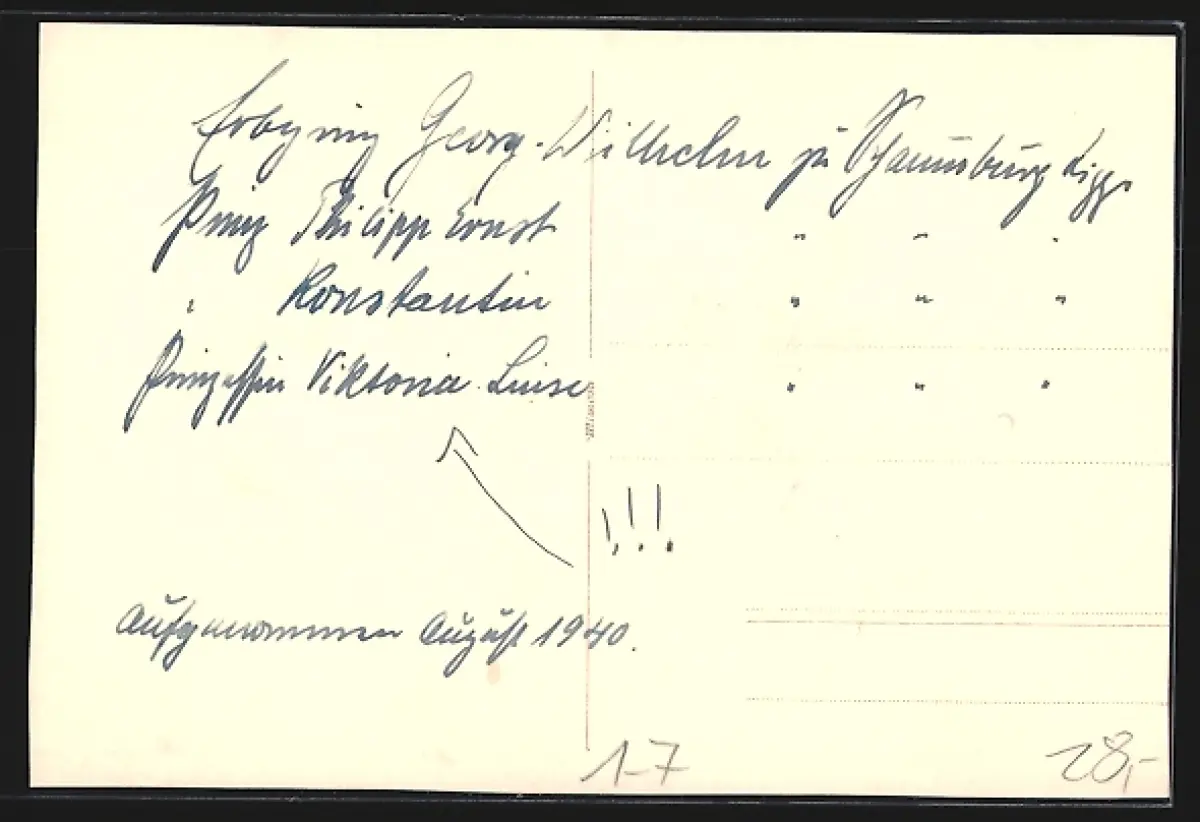 Erbprinz Georg-Wilhelm zu Schaumburg Lippe
Prinz Philipp Ernst " " "
" Konstantin " " "
Prinzessin Viktoria-Luise " " "
!!!
Aufgenommen August 1940.
1-7
28,-